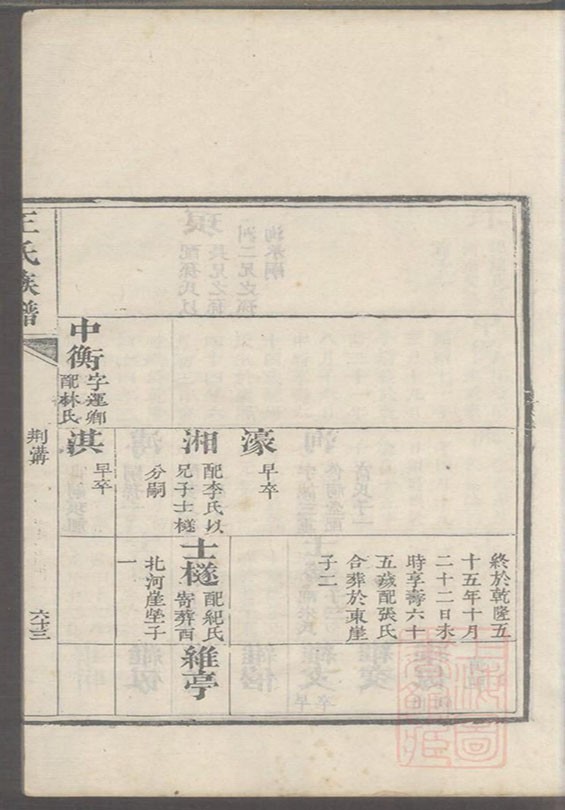 終於乾隆五
十五年十月
二十二日未
時享壽六十
五歲配張氏
合葬於東崖
子二
濠 早卒
湘 配李氏以
兄子士檖
分嗣
士檖 配紀氏
寄葬酉
北河崖塋子
一
維亭
中衡 字運卿
配林氏
淇 早卒
王氏族譜
荆溝
六十三